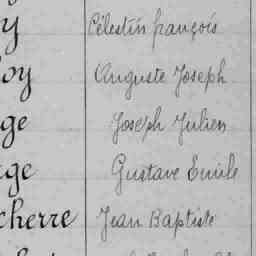 y Célestin françois
oy Auguste Joseph
ge Joseph Julien
ge Gustave Emile
cherre Jean Baptiste